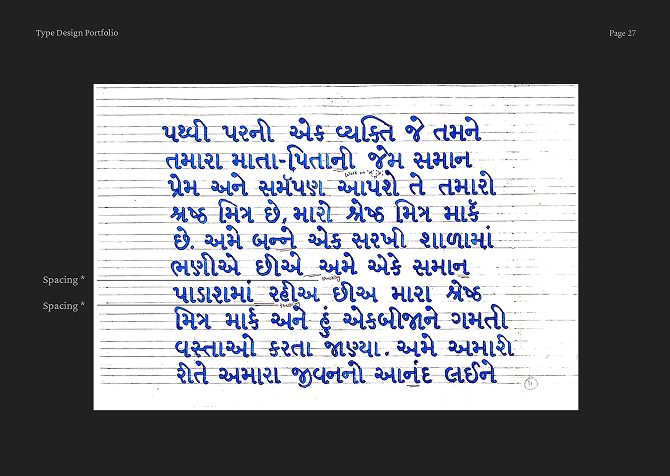 Type Design Portfolio
Page 27
પથ્વી પરની એક વ્યક્તિ જે તમને
તમારા માતા-પિતાની જેમ સમાન
પ્રેમ અને સમૅપણ આપશે તે તમારો
શ્રષ્ઠ મિત્ર છે, મારો શ્રેષ્ઠ મિત્ર માર્ક
છે. અમે બન્ને એક સરખી શાળામાં
ભણીએ છીએ અમે એકે સમાન
પાડાશમાં રહીઅ છીઅ મારા શ્રેષ્ઠ
મિત્ર માર્ક અને હું એકબીજાને ગમતી
વસ્તાઓ કરતા જાણ્યા. અમે અમારી
રીતે અમારા જીવનનો આનંદ લઈને
Spacing *
Spacing *
spacing
spacing
11